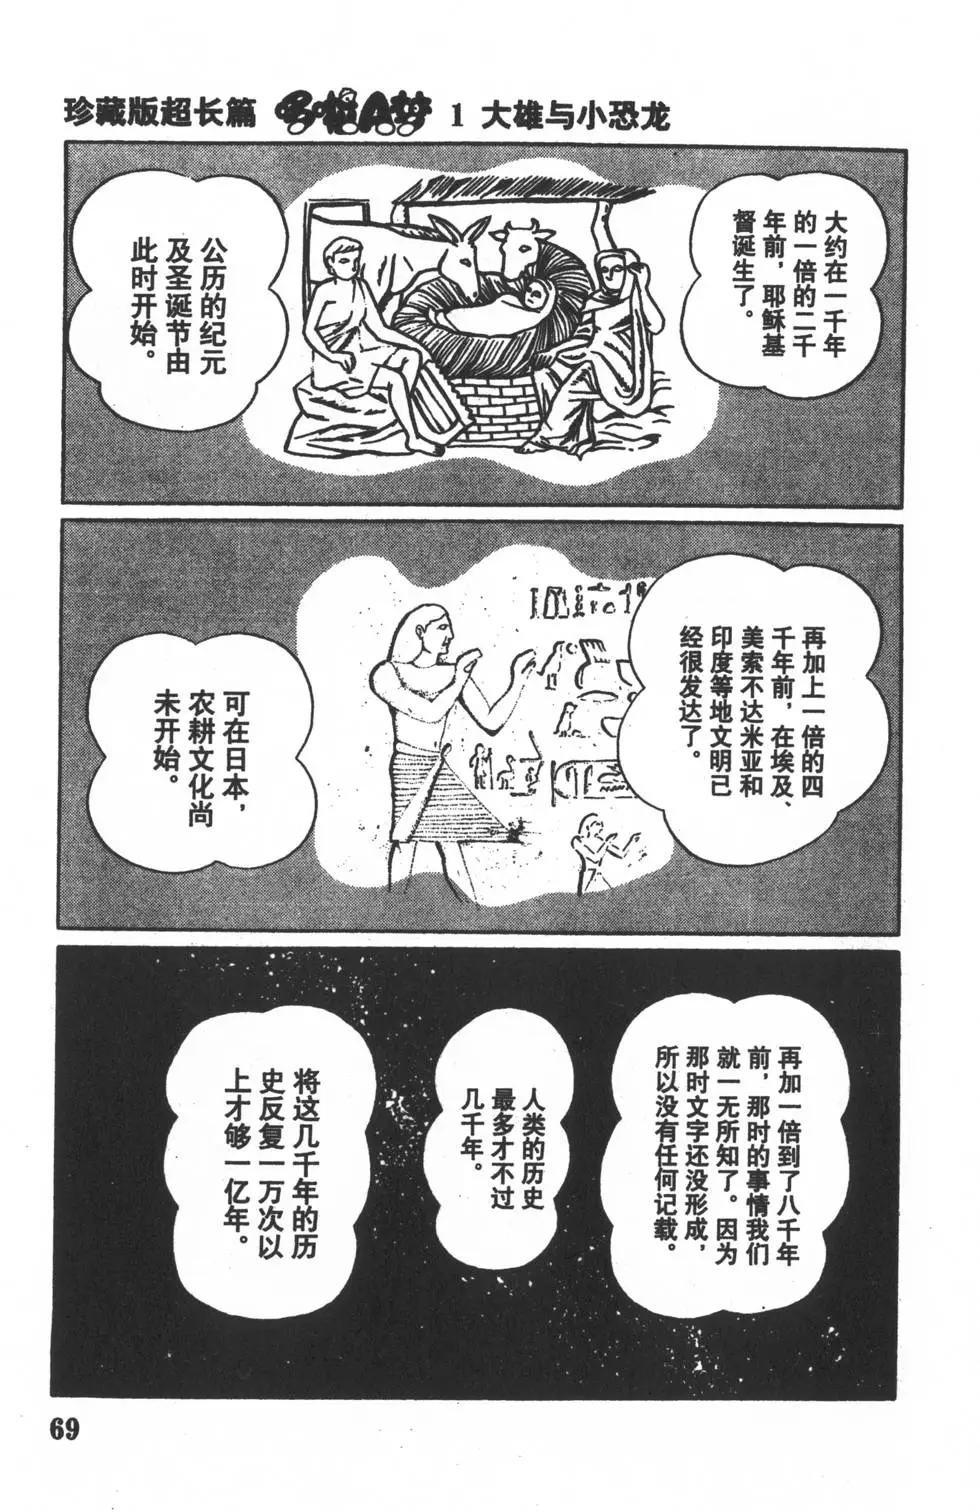 珍藏版超长篇 哆啦A梦 1 大雄与小恐龙
大约在一千年
的一倍的二千
年前，耶稣基
督诞生了。
公历的纪元
及圣诞节由
此时开始。
再加上一倍的四
千年前，在埃及、
美索不达米亚和
印度等地文明已
经很发达了。
可在日本，
农耕文化尚
未开始。
再加一倍到了八千年
前，那时的事情我们
就一无所知了。因为
那时文字还没形成，
所以没有任何记载。
人类的历史
最多才不过
几千年。
将这几千年的历
史反复一万次以
上才够一亿年。
69